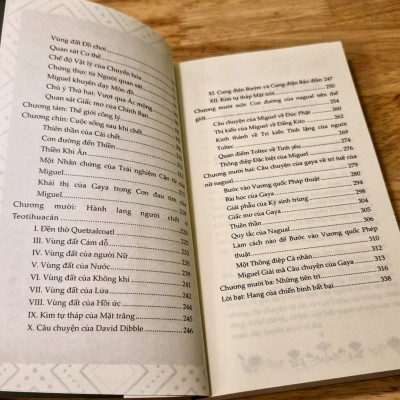 Vùng đất Đồ chơi
Quan sát Cơ thể
Chế độ Vật lý của Chuyển hóa
Chứng thực từ Người quan sát
Miguel khuyên dạy Môn đồ
Chú ý Thứ hai: Vượt qua Ác mộng
Quan sát Giấc mơ của Chính bạn
Chương tám: Thế giới công lý
Chương chín: Cuộc sống sau khi chết
Thiên thần của Cái chết
Con đường đến Thiền
Thiền Khi Ăn
Một Nhân chứng của Trải nghiệm Cận tử của
Miguel
Khải thị của Gaya trong Cơn đau tim của
Miguel
Chương mười: Hành lang người chết ở
Teotihuacán
I. Đền thờ Quetzalcoatl
II. Vùng đất Cám dỗ
III. Vùng đất
IV. Vùng đất của người Nữ
V. Vùng đất của Nước
VI. Vùng đất của Không khí 241
VII. Vùng đất của Lửa 242
VIII. Vùng đất của Hồi ức 244
IX. Kim tự tháp của Mặt trăng 245
X. Câu chuyện của David Dibble 246
XI. Cung điện Bướm và Cung điện Báo đốm 247
XII. Kim tự tháp Mặt trời 250
Chương mười một: Con đường của nagual trên thế
giới
Câu chuyện của Miguel về Đức Phật 254
Thị kiến của Miguel về Đấng Kito 260
Kinh thánh về Tri kiến Tĩnh lặng của người
Toltec
Quan điểm Toltec về Tình yêu 274
Thông điệp Đặc biệt của Miguel 276
Chương mười hai: Câu chuyện của Gaya về trí tuệ của
nữ nagual 279
Bước vào Vương quốc Pháp thuật
Bài học của Gaya
Giải phẫu của Ký sinh trùng 298
Giấc mơ của Gaya
Thiên thần 304
Quy tắc của Nagual 305
Làm cách nào để Bước vào Vương quốc Phép
thuật 310
Một Thông điệp Cá nhân 312
Miguel Giải mã Câu chuyện của Gaya 313
Chương mười ba: Những tiên tri 316
Lời bạt: Hang của chiến binh bất bại 338